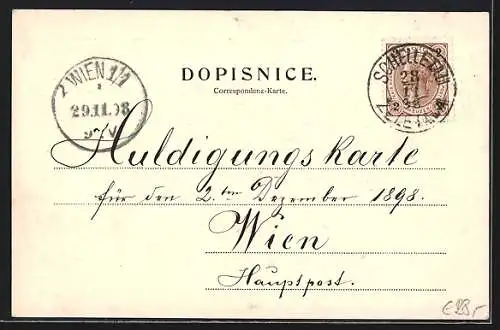 WIEN 1/1
29.11.98
DOPISNICE.
Correspondenz-Karte.
SCHELLETAU
28
11
98
ŽELETAVA
Huldigungskarte
für den 2.ten Dezember 1898.
Wien
Hauptpost.